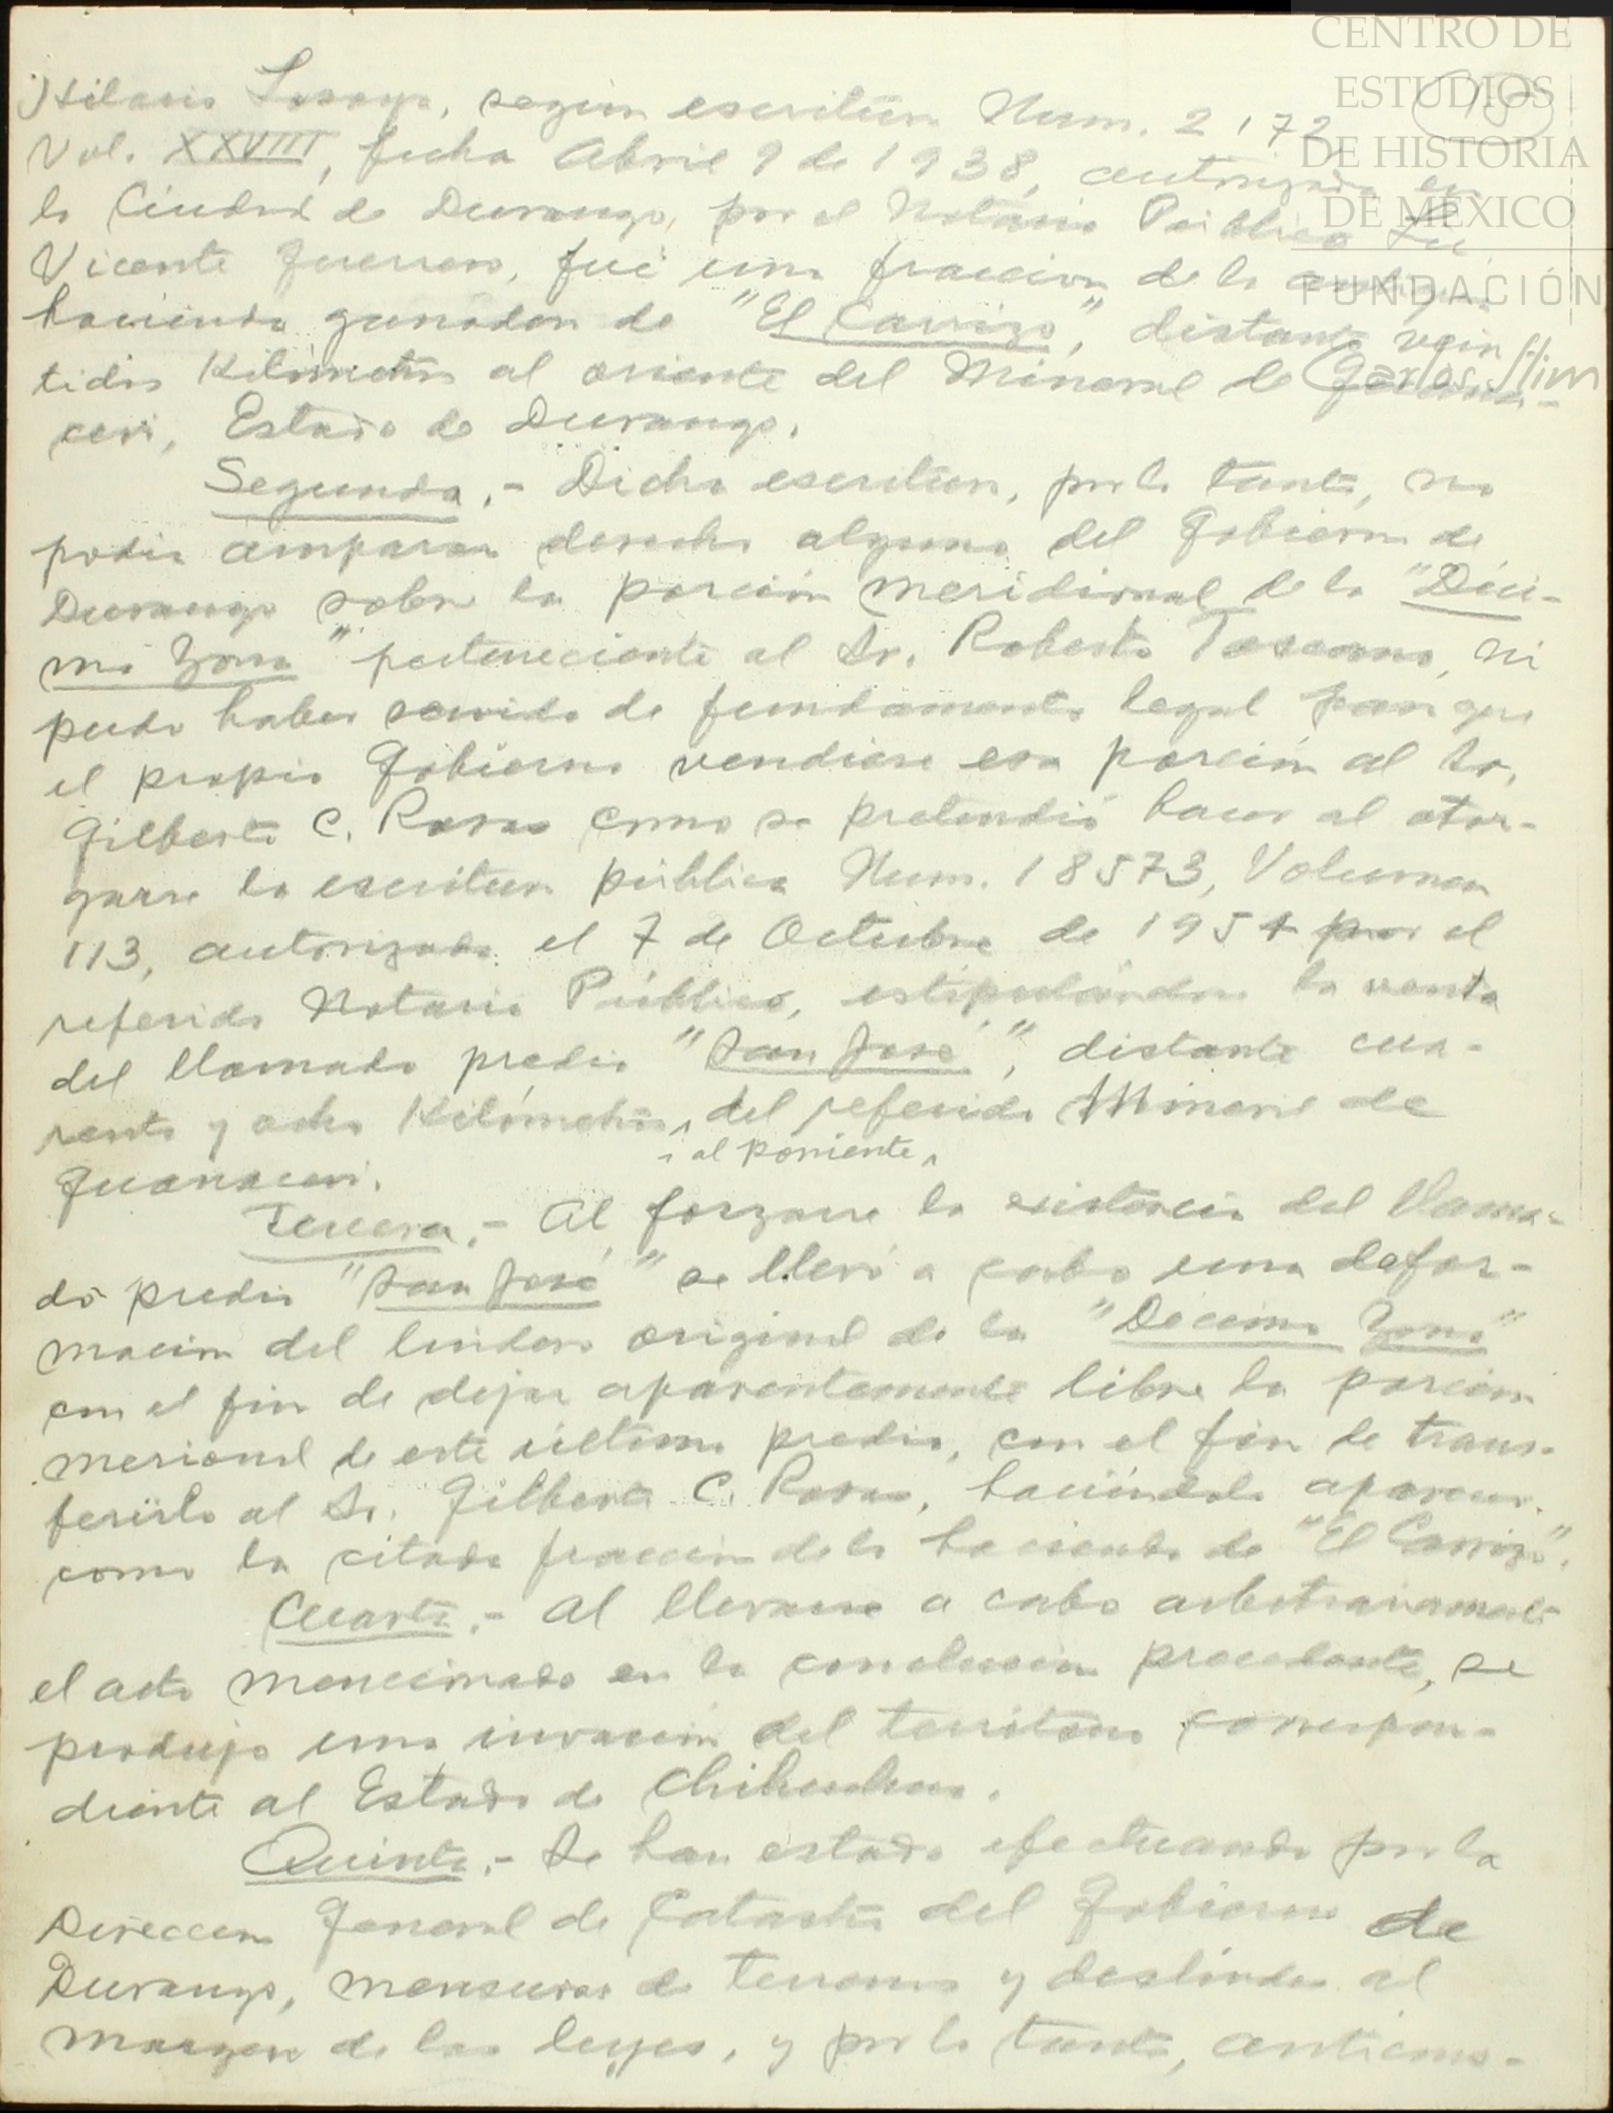 CENTRO DE
ESTUDIOS
DE HISTORIA
DE MÉXICO
FUNDACIÓN
Carlos Slim
Hilario Lozoya, según escritura Num. 2172
Vol. XXVIII, fecha Abril 9 de 1938, autorizada en
la Ciudad de Durango, por el Notario Público Lic.
Vicente Guerrero, fué una fracción de la antigua
hacienda ganadera de "El Carrizo", distante vein
tidos Kilómetros al oriente del Mineral de Guana-
ceví, Estado de Durango.
Segunda.- Dicha escritura, por lo tanto, no
podía amparar derecho alguno del Gobierno de
Durango sobre la porción meridional de la "Déci-
ma Zona" perteneciente al Sr. Roberto Toscano, ni
pudo haber servido de fundamento legal para que
el propio Gobierno vendiese esa porción al Sr.
Gilberto C. Rosas como se pretendió hacer al otor-
garse la escritura pública Num. 18573, Volumen
113, autorizada el 7 de Octubre de 1954 por el
referido Notario Público, estipulándose la venta
del llamado predio "San José", distante cua-
renta y ocho Kilómetros, del referido Mineral de
al poniente
Guanaceví.
Tercera.- Al forzarse la existencia del llama-
do predio "San José" se llevó a cabo una defor-
mación del lindero original de la "Décima Zona"
con el fin de dejar aparentemente libre la porción
merional de este último predio, con el fin de trans-
ferirlo al Sr. Gilberto C. Rosas, haciéndolo aparecer
como la citada fracción de la hacienda de "El Carrizo".
Cuarta.- Al llevarse a cabo arbitrariamente
el acto mencionado en la conclusión precedente, se
produjo una invasión del territorio correspon-
diente al Estado de Chihuahua.
Quinta.- Se han estado efectuando por la
Dirección General de Catastro del Gobierno de
Durango, mensuras de terrenos y deslindes al
margen de las leyes, y por lo tanto, anticons-